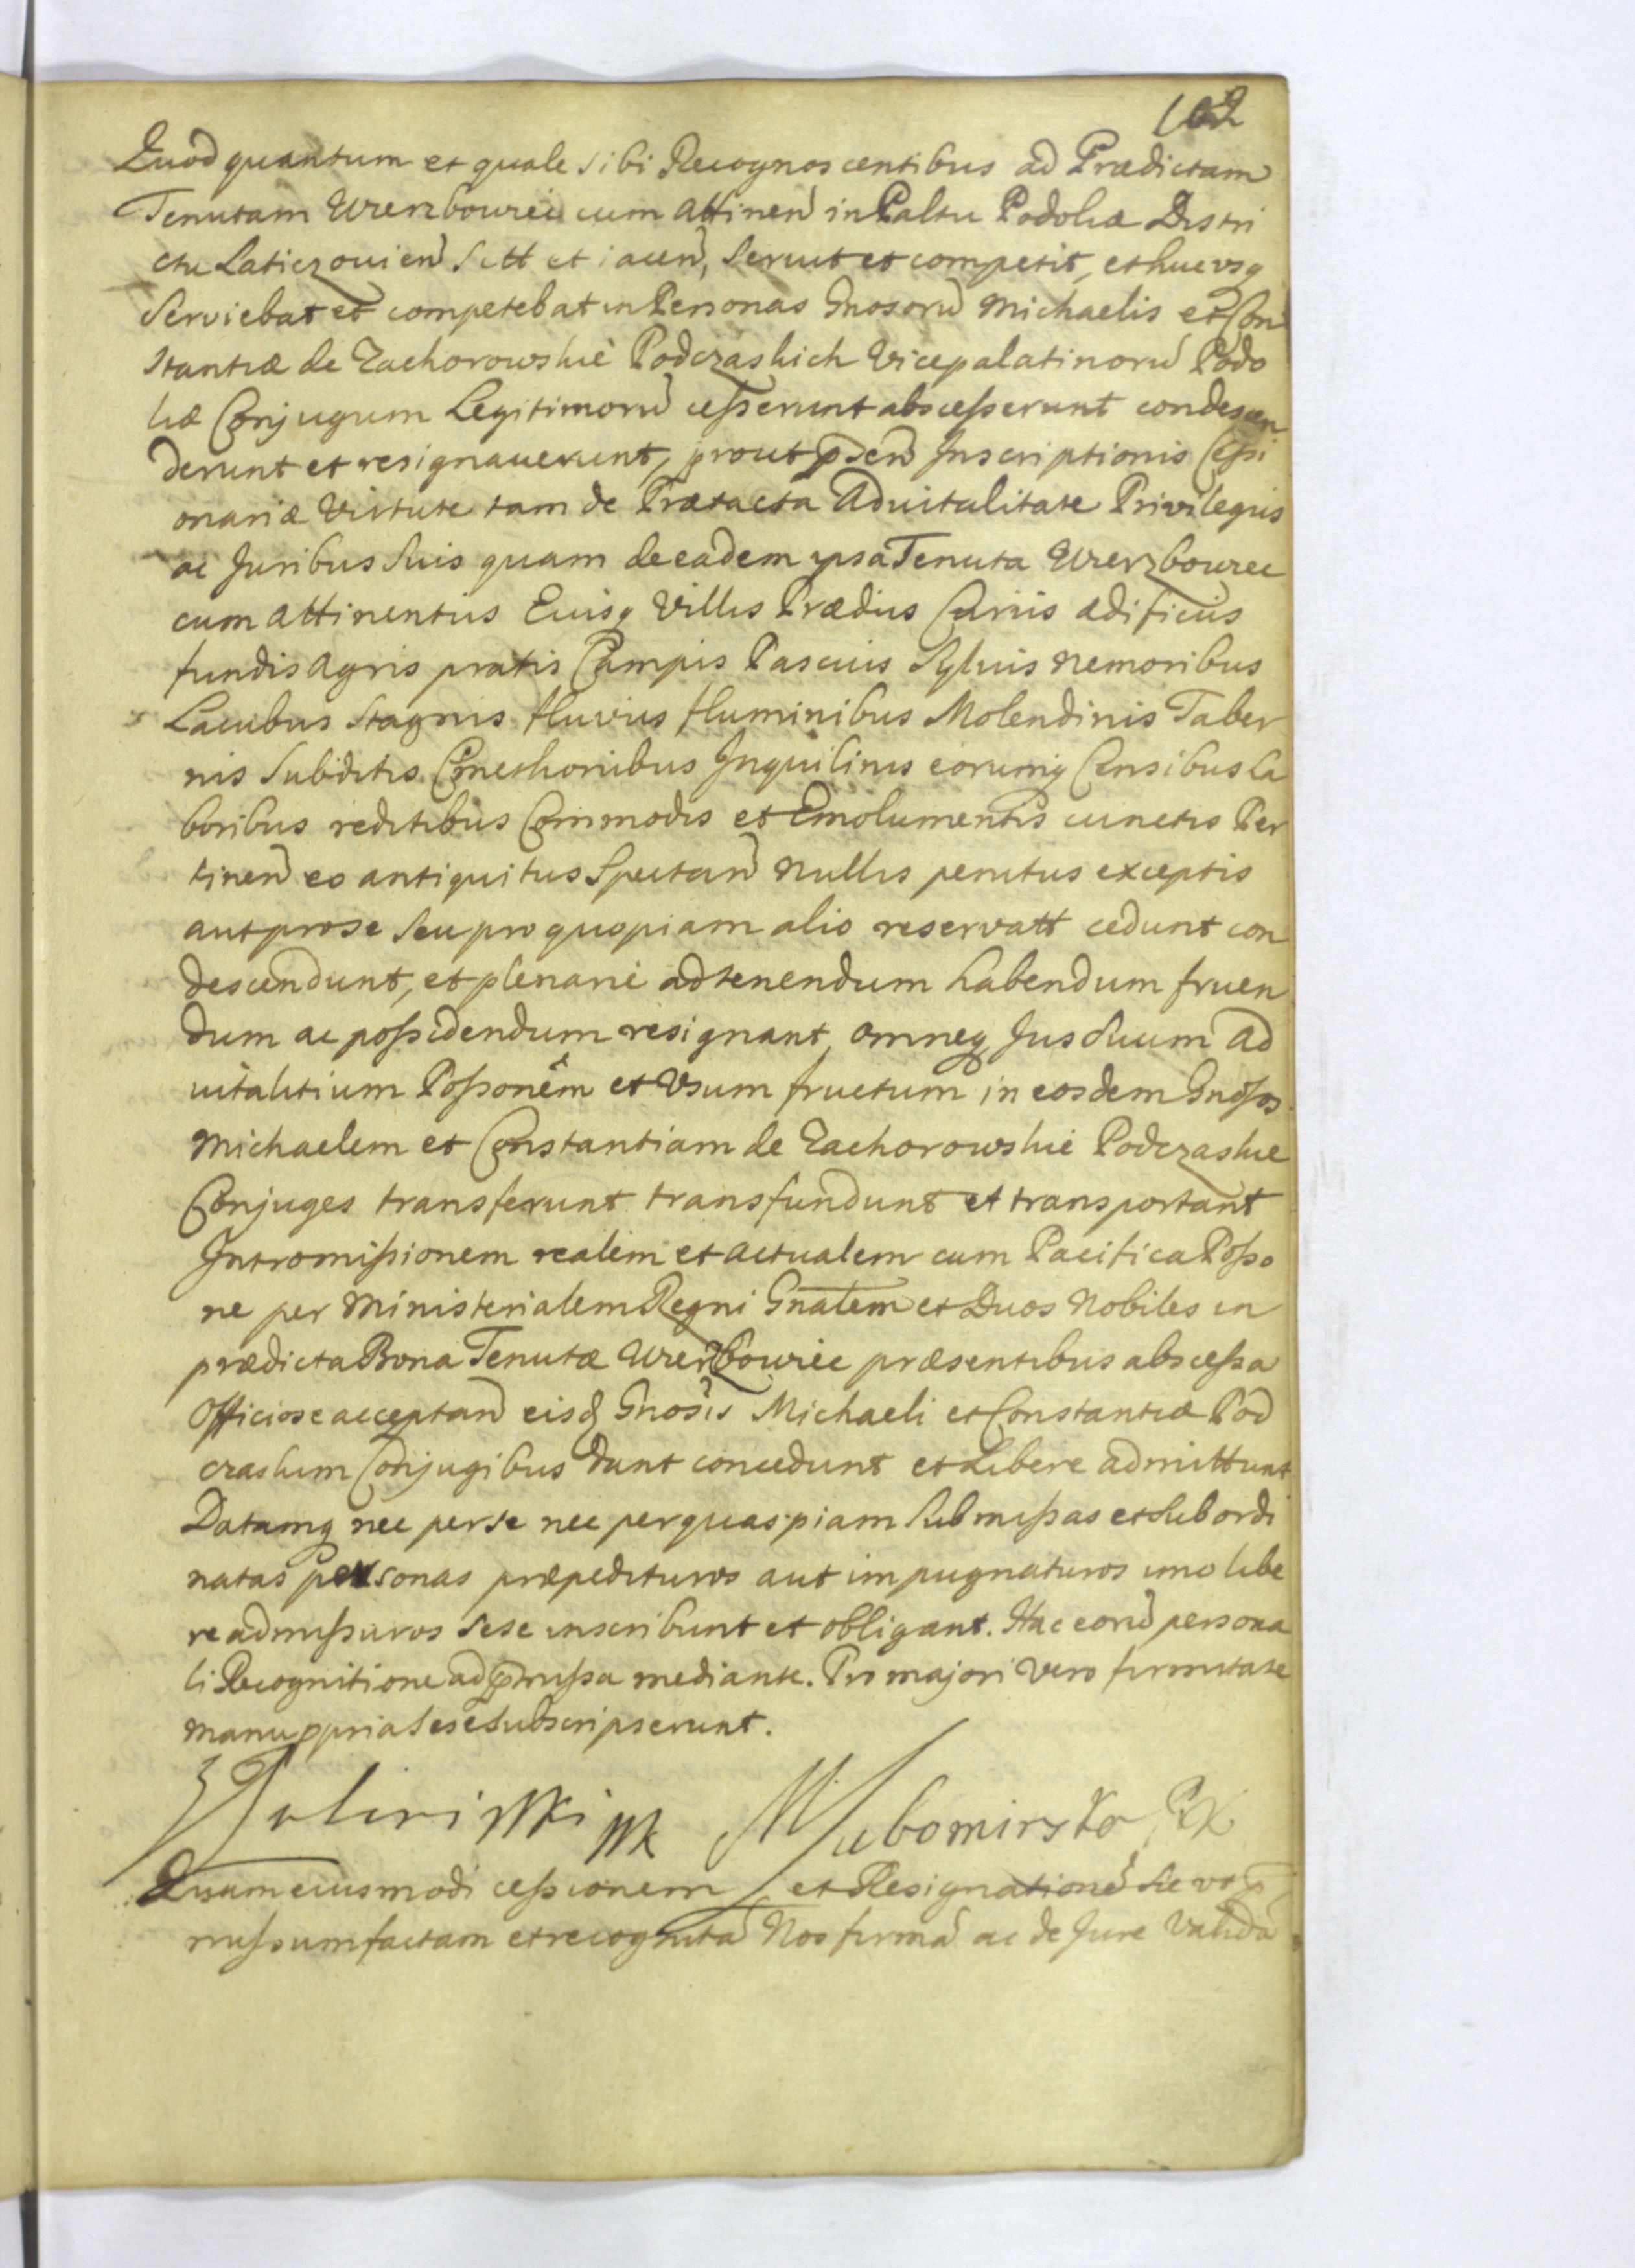 102
Quod quantum et quale sibi Recognoscentibus ad Prædictam
Tenutam Wierzbowiec cum attineñ in Paltu Podoliæ Distri
ctu Laticzovieñ Sitt et iaceñ, servit et competit, et hucusq
Serviebat et competebat in Personas Gnosorũ Michaelis et Con
stantiæ de Zachorowskie Podczaskich Vicepalatinorũ Podo
liæ Conjugum Legitimorũ cesserunt abscesserunt condescen
derunt et resignaverunt, prout pñ Inscriptionis Cessi
onariæ Virtute tam de Prætacta Advitalitate Privilegiis
ac Juribus suis quam de eadem ipsa Tenuta Wierzbowiec
cum attinentiis Eiusq Villis Prædiis Curiis ædificiis
fundis Agris pratis Campis Pascuis Sylvis Nemoribus
Lacubus Stagnis fluviis fluminibus Molendinis Taber
nis Subditis Cmethonibus Inquilinis eorumq Censibus la
boribus reditibus Commodis et Emolumentis cunctis Per
tineñ eo antiquitus Spectañ Nullis penitus exceptis
aut pro se seu pro quopiam alio reservatt cedunt con
descendunt, et plenarie ad tenendum habendum fruen
dum ac possidendum resignant, omneq Jus suum Ad
vitalitium Possonẽm et Usum fructum in eosdem Gnosos
Michaelem et Constantiam de Zachorowskie Podczaskie
Conjuges transferunt transfundunt et transportant
Intromissionem realem et actualem cum Pacifica Posso
ne per Ministerialem Regni Gnalem et Duos Nobiles in
prædicta Bona Tenutæ Wierzbowiec præsentibus abscessa
Officiose acceptañ eisd Gnosis Michaeli et Constantiæ Pod
czaskim Conjugibus dant concedunt et Libere admittunt
Datamq nec per se nec per quaspiam submissas et subordi
natas personas præpedituros aut impugnaturos imo libe
re admissuros sese inscribunt et obligant. Hac eorũ persona
li Recognitione ad præmissa mediante. Pro majori vero firmitate
manu ppria sese subscripserunt.
MLubomirska
Quam eiusmodi cessionem et Resignationẽ
missum factam et recognitã Nos firmã ac de Jure Validã